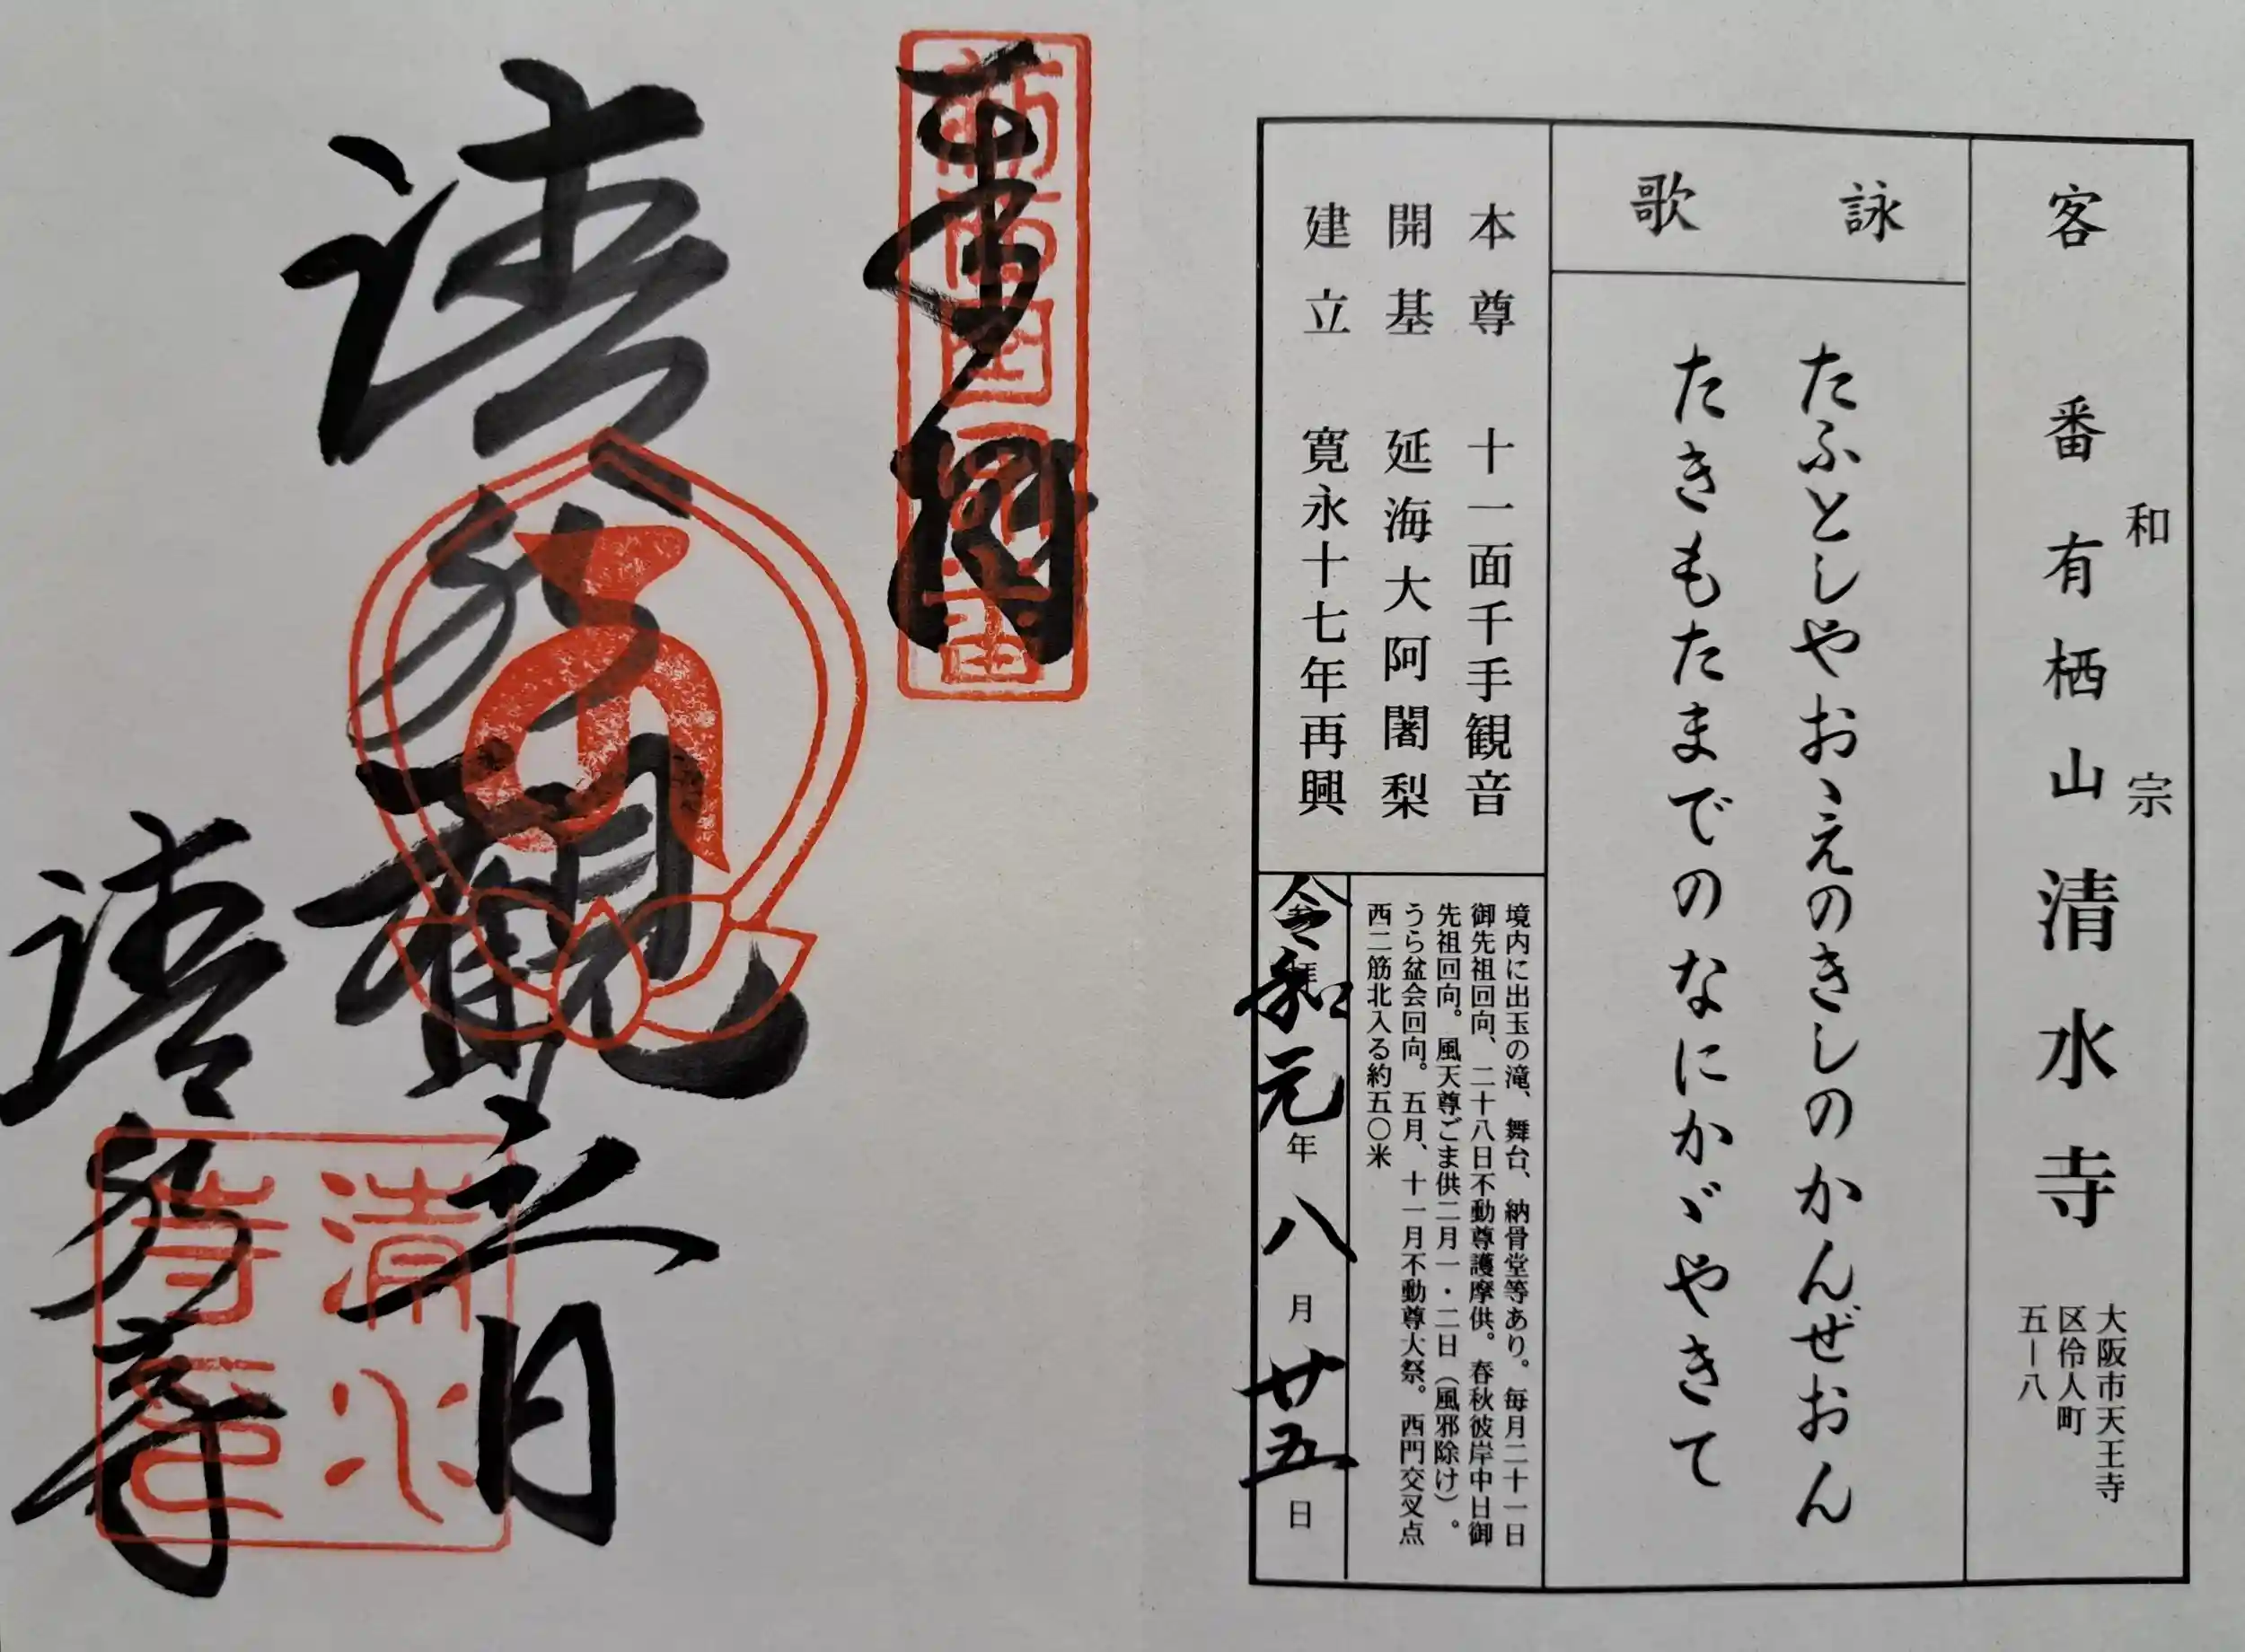 和宗
客番 有栖山 清水寺
大阪市天王寺
区伶人町
五ー八
詠歌
たふとしやおゝえのきしのかんぜおん
たきもたまでのなにかゞやきて
本尊 十一面千手観音
開基 延海大阿闍梨
建立 寛永十七年再興
境内に出玉の滝、舞台、納骨堂等あり。毎月二十一日
御先祖回向、二十八日不動尊護摩供。春秋彼岸中日御
先祖回向。風天尊ごま供二月一・二日（風邪除け）。
うら盆会回向。五月、十一月不動尊大祭。西門交叉点
西二筋北入る約五〇米
令和元年八月廿五日
奉拝
清水観音
清水寺
清水寺印